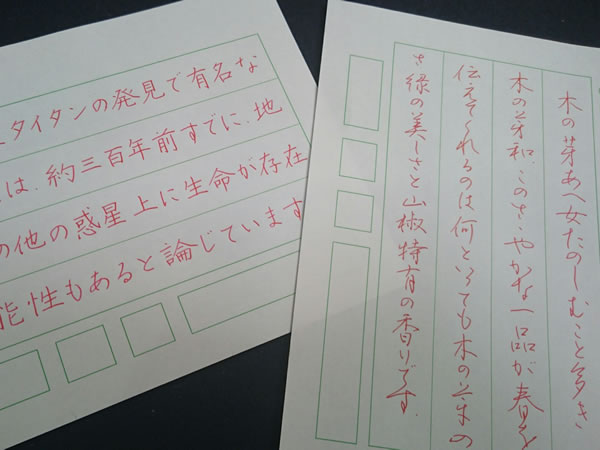 タイタンの発見で有名な
は、約三百年前すでに、地
の他の惑星上に生命が存在
能性もあると論じています
木の芽あへ女たのしむこと多き
木の芽和、このさゝやかな一品が春を
伝えてくれるのは何といっても木の芽の
さ緑の美しさと山椒特有の香りです。